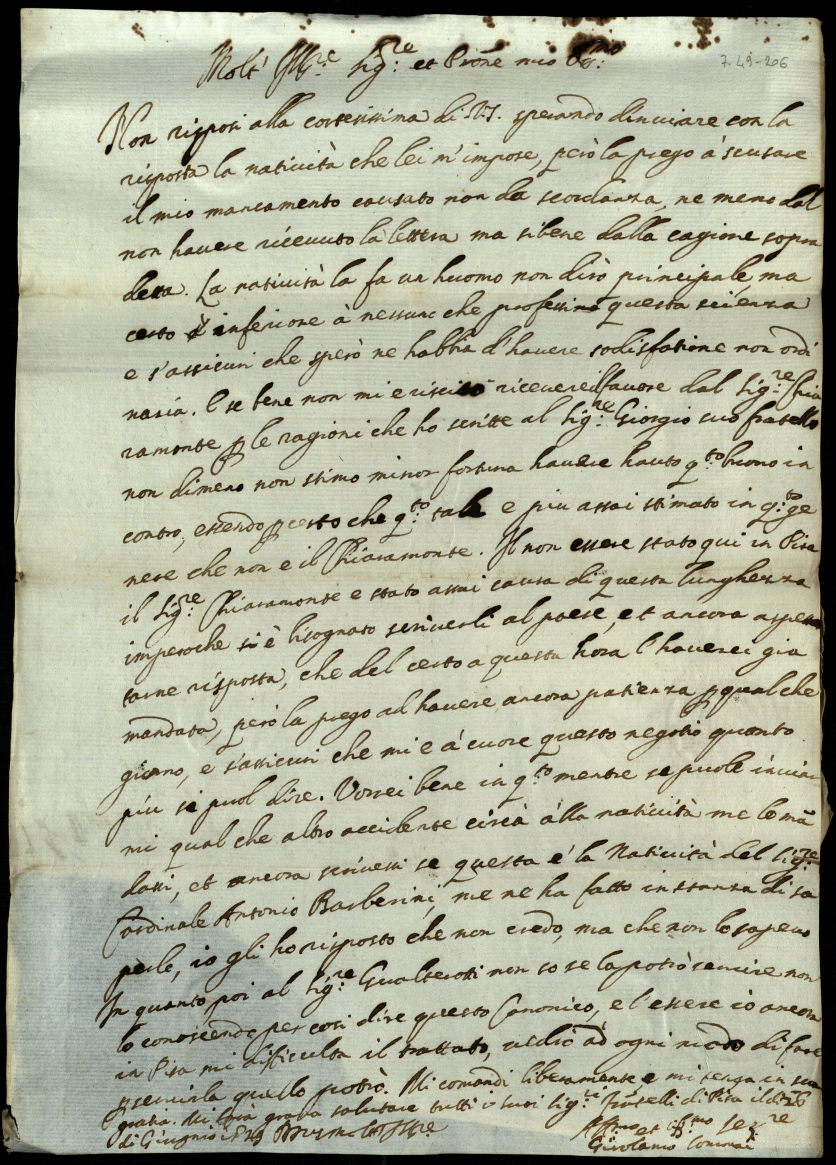 7.49-206
Molt' Ill.re Sig.re et Prone mio Oss.mo
Non risposi alla cortesissima di V.S. sperando d'inviare con la
risposta la natività che lei m'impose, però la prego à scusare
il mio mancamento causato non da scordanza, ne meno dal
non havere ricevuto la lettera ma sibene dalla cagione sopra
detta. La natività la fa un huomo non dirò principale, ma
certo inferiore à nessuno che professino questa scienza
e s'assicuri che sperò ne habbia d'havere sodisfatione non ordi
naria. E se bene non mi è riuscito ricevere il favore dal Sig.re Chia
ramonte p le ragioni che ho scritte al Sig.re Giorgio suo fratello
non dimeno non stimo minor fortuna havere hauto q.to buono in
contro, essendo p certo che q.to tale e piu assai stimato in q.to ge
nere che non è il Chiaramonte. Il non essere stato qui in Pisa
il Sig.re Chiaramonte e stato assai causa di questa lunghezza
imperoche si è bisognato scriverli al paese, et ancora aspet
tarne risposta, che del certo a questa hora l'haverei gia
mandata, però la prego ad havere ancora patienza p qualche
giorno, e s'assicuri che mi è à cuore questo negotio quanto
piu si puol dire. Vorrei bene in q.to mentre se puole inviar
mi qual che altro accidente circa alla natività me lo mã
dassi, et ancora scrivessi se questa è la Natività del Sig.re
Cardinale Antonio Barberini, me ne ha fatto instanza di sa
perlo, io gli ho risposto che non credo, ma che non lo sapevo
In quanto poi al Sig.re Gualterotti non so se la potrò servire non
lo conoscendo per così dire questo Canonico, e l'essere io ancora
in Pisa mi difficulta il trattato, vedrò ad ogni modo di fare
p servirla quello potrò. Mi comandi liberamente e mi tenga in sua
gratia. Mi farà gratia salutare tutti i suoi Sig.ri fratelli di Pisa il dì 26
di Giugno
Aff.mo et Serv.re
Girolamo